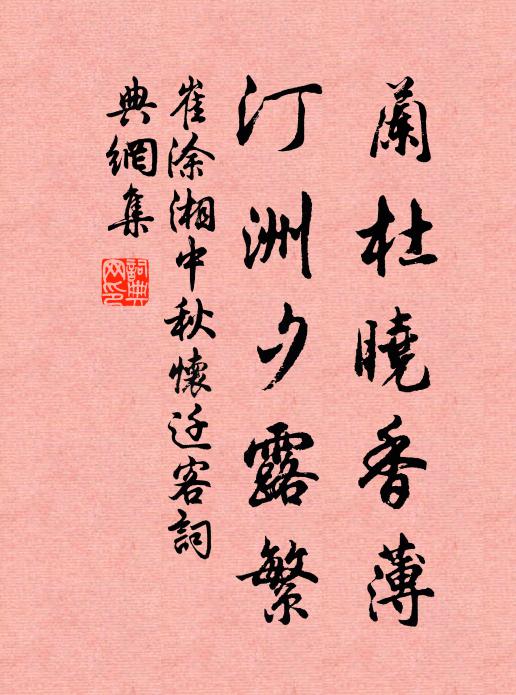 蘭杜曉香薄
汀洲夕露繁
崔涂湘中秋懷迁客詞
典網集
詞典
网印